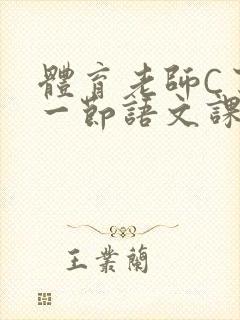 體育老師C
一節語文課
王業蘭